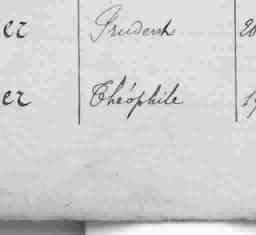 er Prudent 20
er Théophile 19